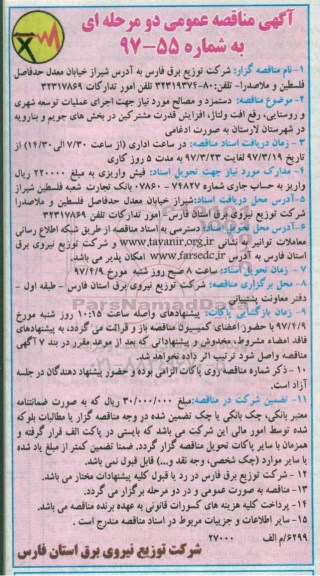 آگهی مناقصه عمومی دو مرحله ای
به شماره ۵۵-۹۷
۱- نام مناقصه گزار: شرکت توزیع برق فارس به آدرس شیراز خیابان معدل حدفاصل
فلسطین و ملاصدرا- تلفن: ۸۰-۳۲۳۱۹۳۷۴ تلفن امور تدارکات ۳۲۳۱۷۸۶۹
۲- موضوع مناقصه: دستمزد و مصالح مورد نیاز جهت اجرای عملیات توسعه شهری
و روستایی، رفع افت ولتاژ، افزایش قدرت مشترکین در بخش های جویم و بنارویه
در شهرستان لارستان به صورت ادغامی
۳- زمان دریافت اسناد مناقصه: در ساعت اداری (از ساعت ۷/۳۰ الی ۱۴/۳۰) از
تاریخ ۹۷/۳/۱۹ لغایت ۹۷/۳/۲۳ به مدت ۵ روز کاری
۴- مدارک مورد نیاز جهت تحویل اسناد: فیش واریزی به مبلغ ۲۲۰۰۰۰ ریال
واریز به حساب جاری شماره ۷۴۸۲۷-۰۷۸۶۰ بانک تجارت شعبه فلسطین شیراز
۵- آدرس محل دریافت اسناد: شیراز خیابان معدل حدفاصل فلسطین و ملاصدرا
شرکت توزیع نیروی برق استان فارس - امور تدارکات تلفن ۳۲۳۱۷۸۶۹
۶- آدرس محل تحویل اسناد: دسترسی به اسناد مناقصه از طریق شبکه اطلاع رسانی
معاملات توانیر به نشانی www.tavanir.org.ir و شرکت توزیع نیروی برق
استان فارس به آدرس www.farsedc.ir امکان پذیر می باشد.
۷- زمان تحویل اسناد: ساعت ۸ صبح روز شنبه مورخ ۹۷/۴/۹
۸- محل برگزاری مناقصه: شرکت توزیع نیروی برق استان فارس - طبقه اول -
دفتر معاونت پشتیبانی
۹- زمان بازگشایی پاکات: پیشنهادهای واصله ساعت ۱۰:۱۵ روز شنبه مورخ
۹۷/۴/۹ با حضور اعضای کمیسیون مناقصه باز و قرائت می گردد، به پیشنهادهای
فاقد امضاء مشروط، مخدوش و پیشنهاداتی که بعد از موعد مقرر در بند ۷ آگهی
مناقصه واصل شود ترتیب اثر داده نخواهد شد.
۱۰- ذکر شماره مناقصه روی پاکات الزامی بوده و حضور پیشنهاد دهندگان در جلسه
آزاد است.
۱۱- تضمین شرکت در مناقصه: مبلغ ۳۰/۰۰۰/۰۰۰ ریال که به صورت ضمانتنامه
معتبر بانکی، چک بانکی یا چک تضمین شده در وجه مناقصه گزار یا مطالبات بلوکه
شده توسط امور مالی این شرکت می باشد که بایستی در پاکت الف قرار گرفته و
همزمان با سایر پاکات تحویل مناقصه گزار گردد. ضمنا تضمین کمتر از مبلغ یاد شده
یا سایر موارد (چک شخصی، وجه نقد و...) قابل قبول نمی باشد.
۱۲- شرکت توزیع برق فارس در رد یا قبول کلیه پیشنهادات مختار می باشد.
۱۳- مناقصه به صورت عمومی و در دو مرحله برگزار می گردد.
۱۴- پرداخت کلیه هزینه های کسورات قانونی به عهده برنده مناقصه می باشد.
۱۵- سایر اطلاعات و جزئیات مربوط در اسناد مناقصه مندرج است.
۶۲۹۹/م الف ۲۷۰۰۰
شرکت توزیع نیروی برق استان فارس